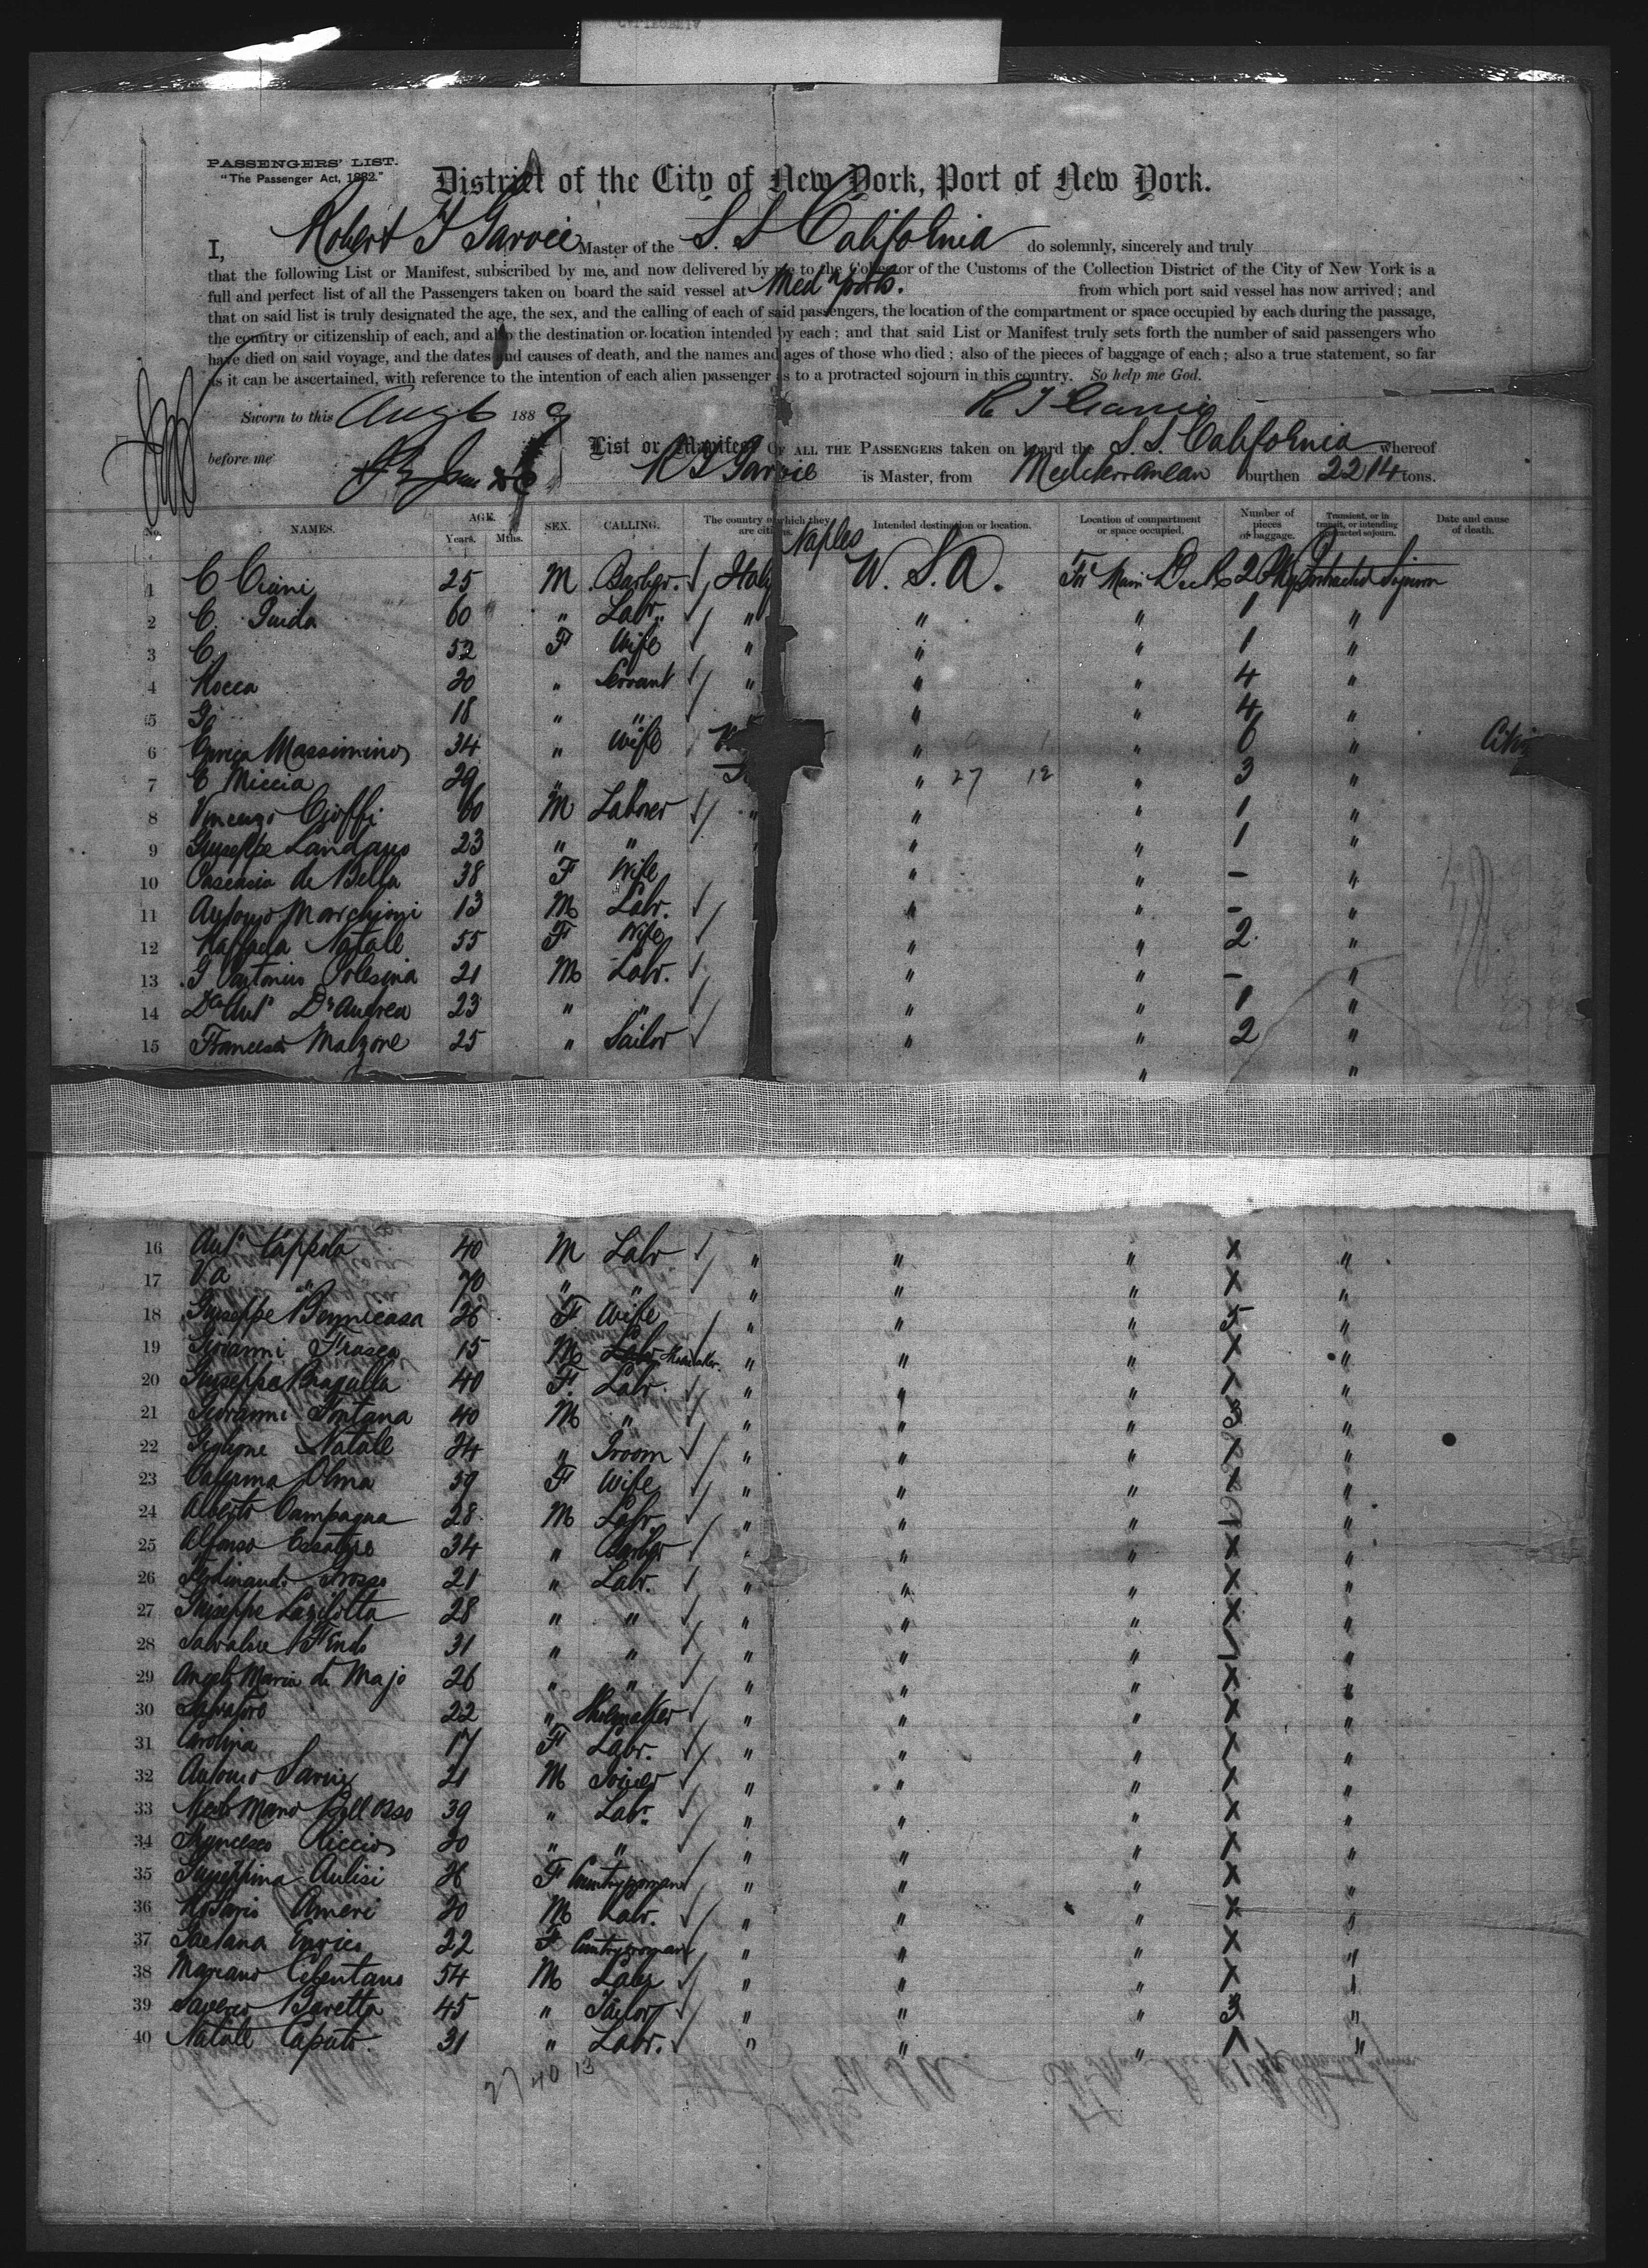 PASSENGERS' LIST.
"The Passenger Act, 1882."
District of the City of New York, Port of New York.
I, Robert J Garvie Master of the S. S California do solemnly, sincerely and truly
that the following List or Manifest, subscribed by me, and now delivered by me to the Collector of the Customs of the Collection District of the City of New York is a
full and perfect list of all the Passengers taken on board the said vessel at Medn ports. from which port said vessel has now arrived; and
that on said list is truly designated the age, the sex, and the calling of each of said passengers, the location of the compartment or space occupied by each during the passage,
the country or citizenship of each, and also the destination or location intended by each; and that said List or Manifest truly sets forth the number of said passengers who
have died on said voyage, and the dates and causes of death, and the names and ages of those who died; also of the pieces of baggage of each; also a true statement, so far
as it can be ascertained, with reference to the intention of each alien passenger as to a protracted sojourn in this country. So help me God.
Sworn to this Aug 6 1889 R J Garvie
before me
List or Manifest OF ALL THE PASSENGERS taken on board the S. S. California whereof
R J Garvie is Master, from Mediterranean burthen 2214 tons.
No. NAMES. AGE. Years. Mths. SEX. CALLING. The country of which they are citizens. Intended destination or location. Location of compartment or space occupied. Number of pieces of baggage. Transient, or in transit, or intending protracted sojourn. Date and cause of death.
Naples
1 C Ciani 25 M Barber Italy U. S. A. For Main Deck 2 Pkg Protracted Sojourn
2 C. Guida 60 " Labr. " " " 1 "
3 C. 52 F Wife " " " 1 "
4 Rocca 20 " Servant " " " 4 "
5 G 18 " " " " 4 "
6 Enrica Massimino 34 " Wife " " 6 "
7 C Miccia 29 " " " 27 12 " 3 "
8 Vincenzo Cioffi 60 M Laborer " " " 1 "
9 Giuseppe Landano 23 " " " " 1 "
10 de Bella 38 F Wife " " - "
11 Antonio Marchioni 13 M Labr. " " - "
12 Raffaela Natale 55 F Wife " " 2 "
13 G Antonio 21 M Labr. " " - "
14 Ant D'Andrea 23 " " " " 1 "
15 Francesco Malzone 25 " Sailor " " 2 "
" "
16 Anto Cappola 40 M Labr " " " X "
17 Va " 70 " " " " " X "
18 Giuseppe 26 F Wife " " " 5 "
19 Giovanni Frasca 15 M Shoemaker " " " X "
20 Giuseppa 40 F. Labr. " " " 1 "
21 Giovanni Fontana 40 M " " " " 3 "
22 Natale 24 " Groom " " " X "
23 Olma 59 F Wife " " " 1 "
24 Alberto Campagna 28 M Labr. " " " "
25 Alfonso 34 " Barber " " " X "
26 Ferdinando Grosso 21 " Labr. " " " X "
27 Giuseppe 28 " " " " " X "
28 Salvatore 31 " " " " " 1 "
29 Angelo Maria di Majo 26 " " " " " X "
30 Salvatore 22 " Shoemaker " " " X "
31 Carolina 17 F Labr. " " " 1 "
32 Antonio 21 M Joiner " " " 1 "
33 39 " Labr. " " " X "
34 Francesco Riccio 20 " " " " " 1 "
35 Giuseppina Aulisi 26 F Countrywoman " " " X "
36 Rosario Ameri 20 M Labr. " " " X "
37 Gaetana Enrico 22 F Countrywoman " " " X "
38 Mariano Cilentano 54 M Labr " " " 1 "
39 Saverio Baretta 45 " Tailor " " " 3 "
40 Natale Caputo. 31 " Labr. " " " 1 "
27 40 13